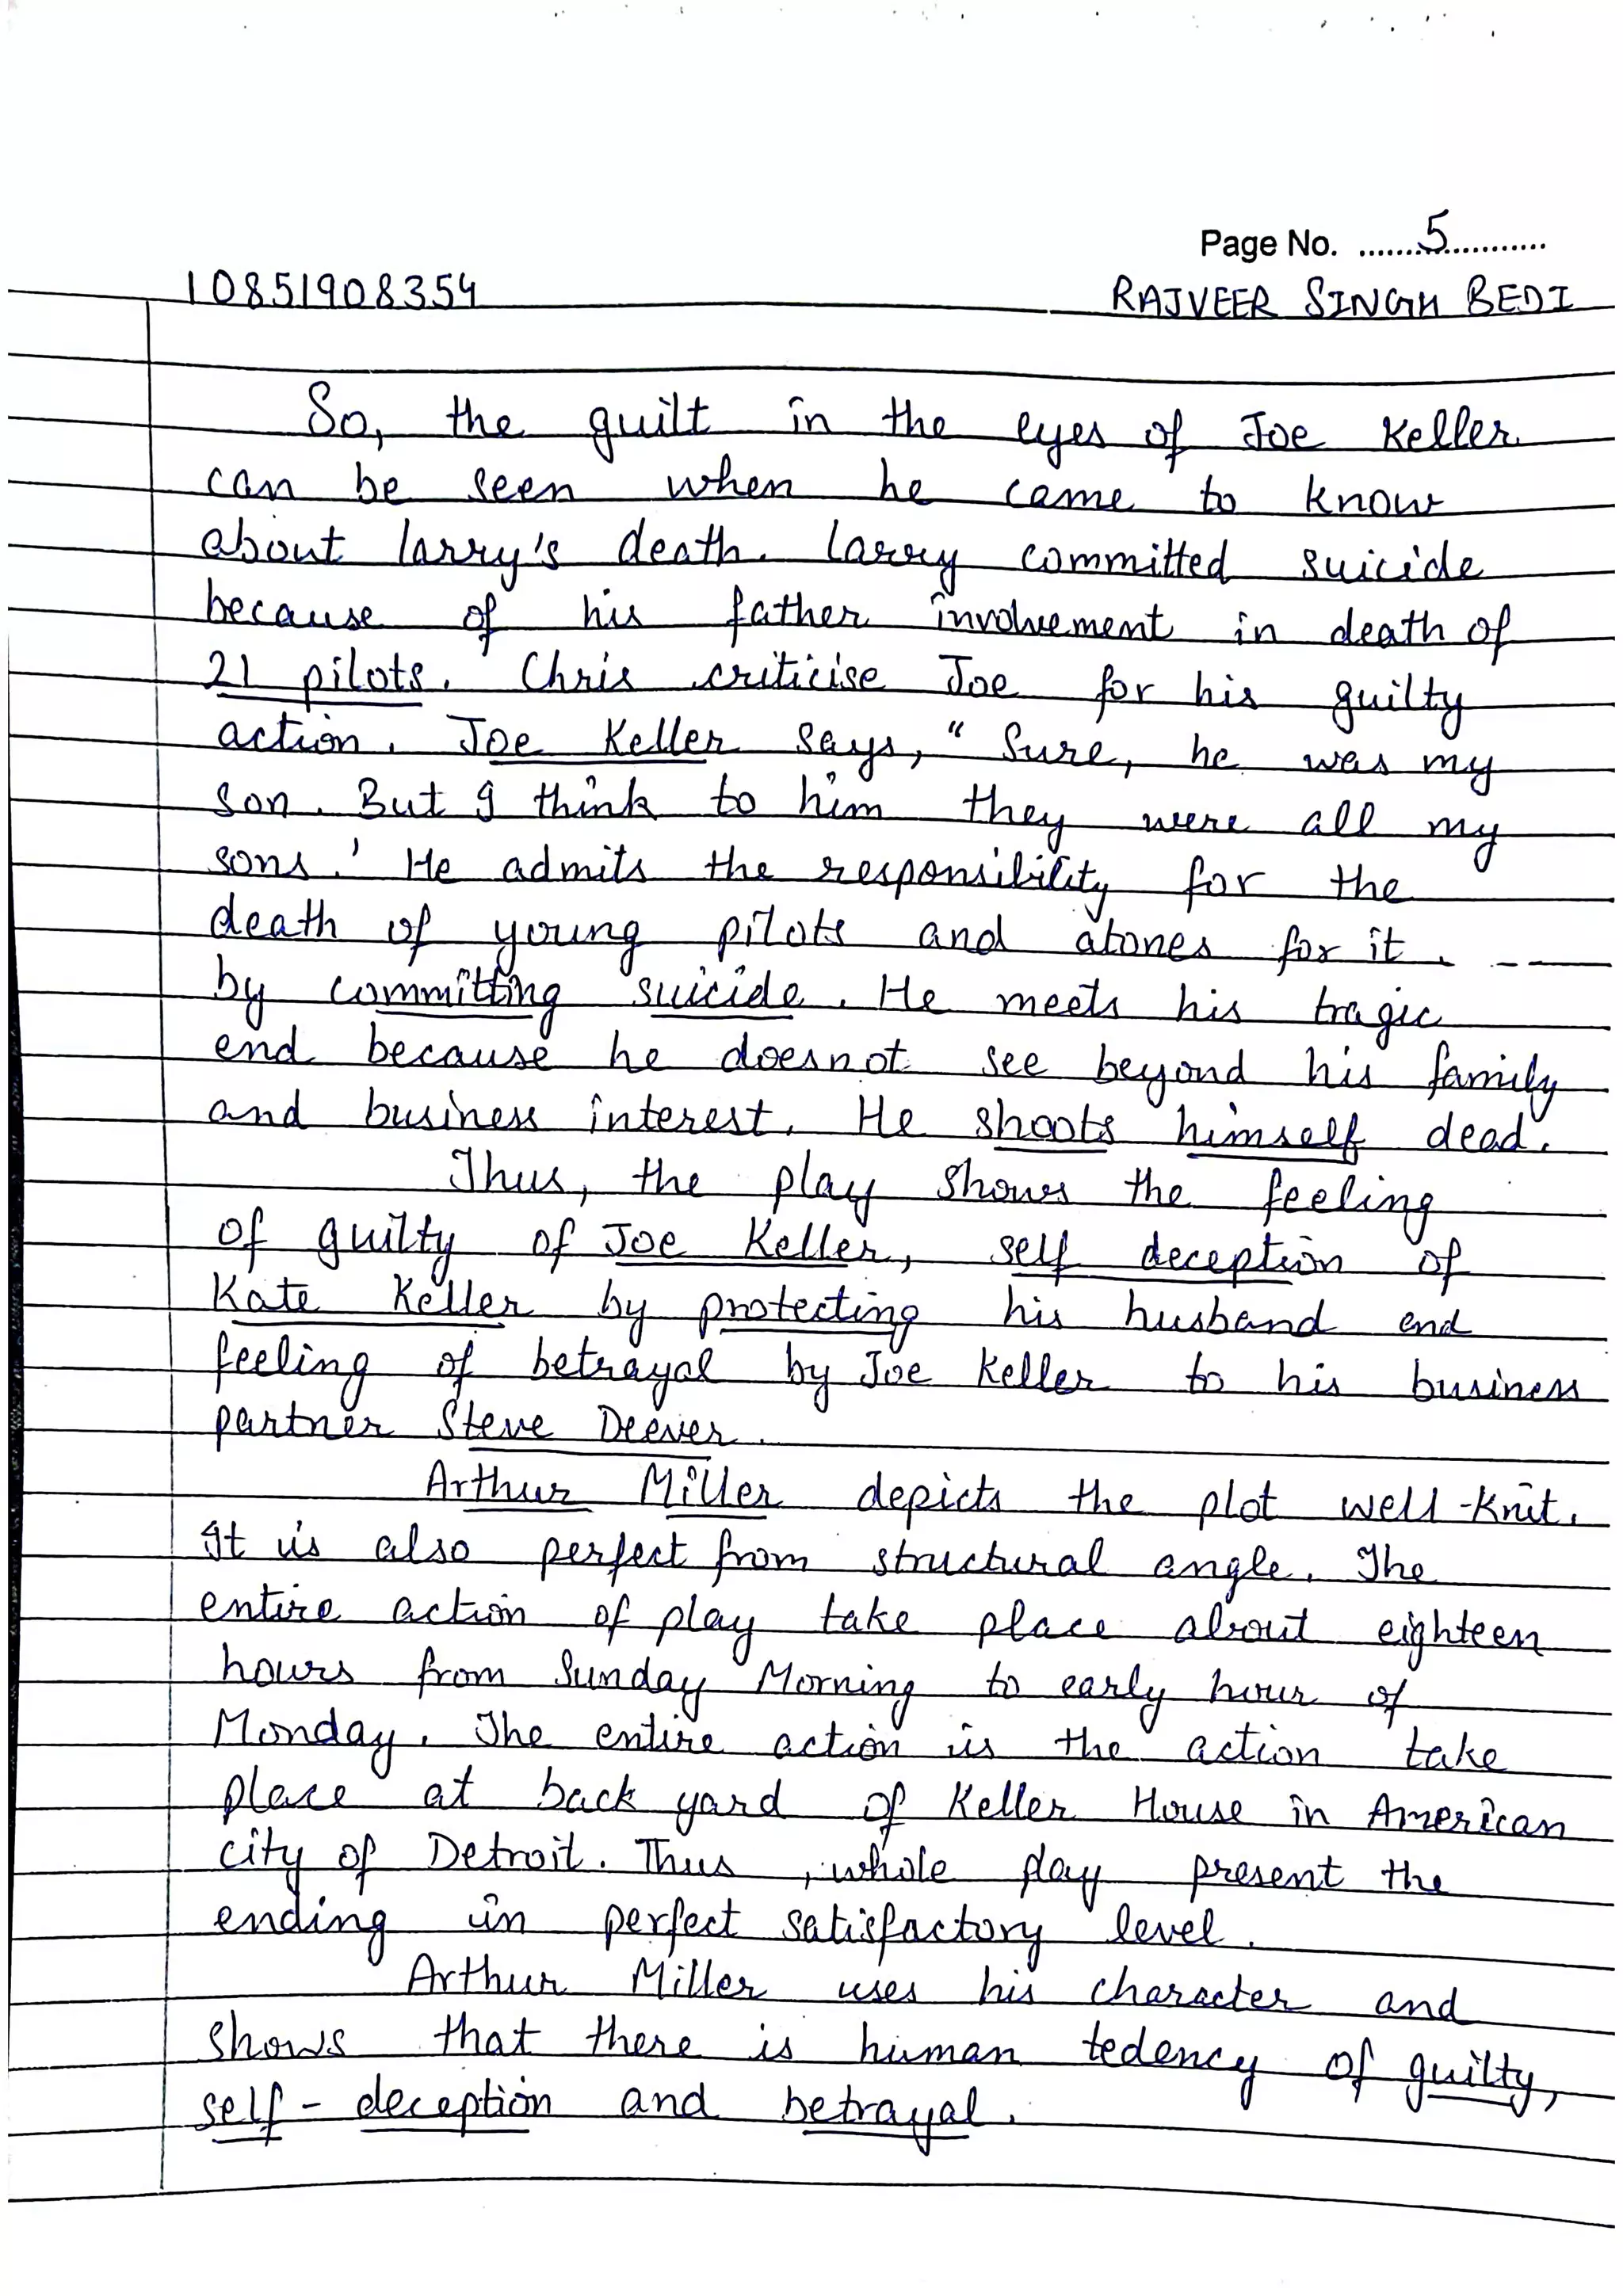 Page No. .......5...........
10851908354 RAJVEER SINGH BEDI
So, the guilt in the eyes of Joe Keller
can be seen when he came to know
about larry's death. larry committed suicide
because of his father involvement in death of
21 pilots. Chris criticise Joe for his guilty
action. Joe Keller says, "Sure, he was my
son. But I think to him they were all my
sons.' He admits the responsibility for the
death of young pilots and atones for it. ---
by committing suicide. He meets his tragic
end because he doesnot see beyond his family
and business interest. He shoots himself dead.
Thus, the play shows the feeling
of guilty of Joe Keller, self deception of
Kate Keller by protecting his husband and
feeling of betrayal by Joe Keller to his business
partner Steve Deever.
Arthur Miller depicts the plot well-knit.
It is also perfect from structural angle. The
entire action of play take place about eighteen
hours from Sunday Morning to early hour of
Monday. The entire action is the action take
place at back yard of Keller House in American
city of Detroit. Thus, whole play present the
ending in perfect satisfactory level.
Arthur Miller uses his character and
shows that there is human tedency of guilty,
self-deception and betrayal.